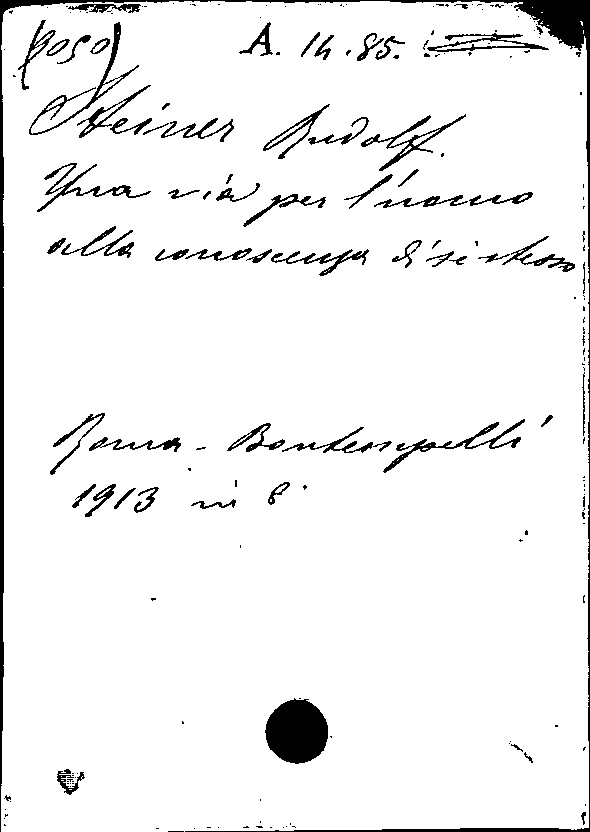 A. 14.85.
Steiner Rudolf.
Una via per l'uomo
alla conoscenza di sè stesso
Roma - Bontempelli
1913 in 8°